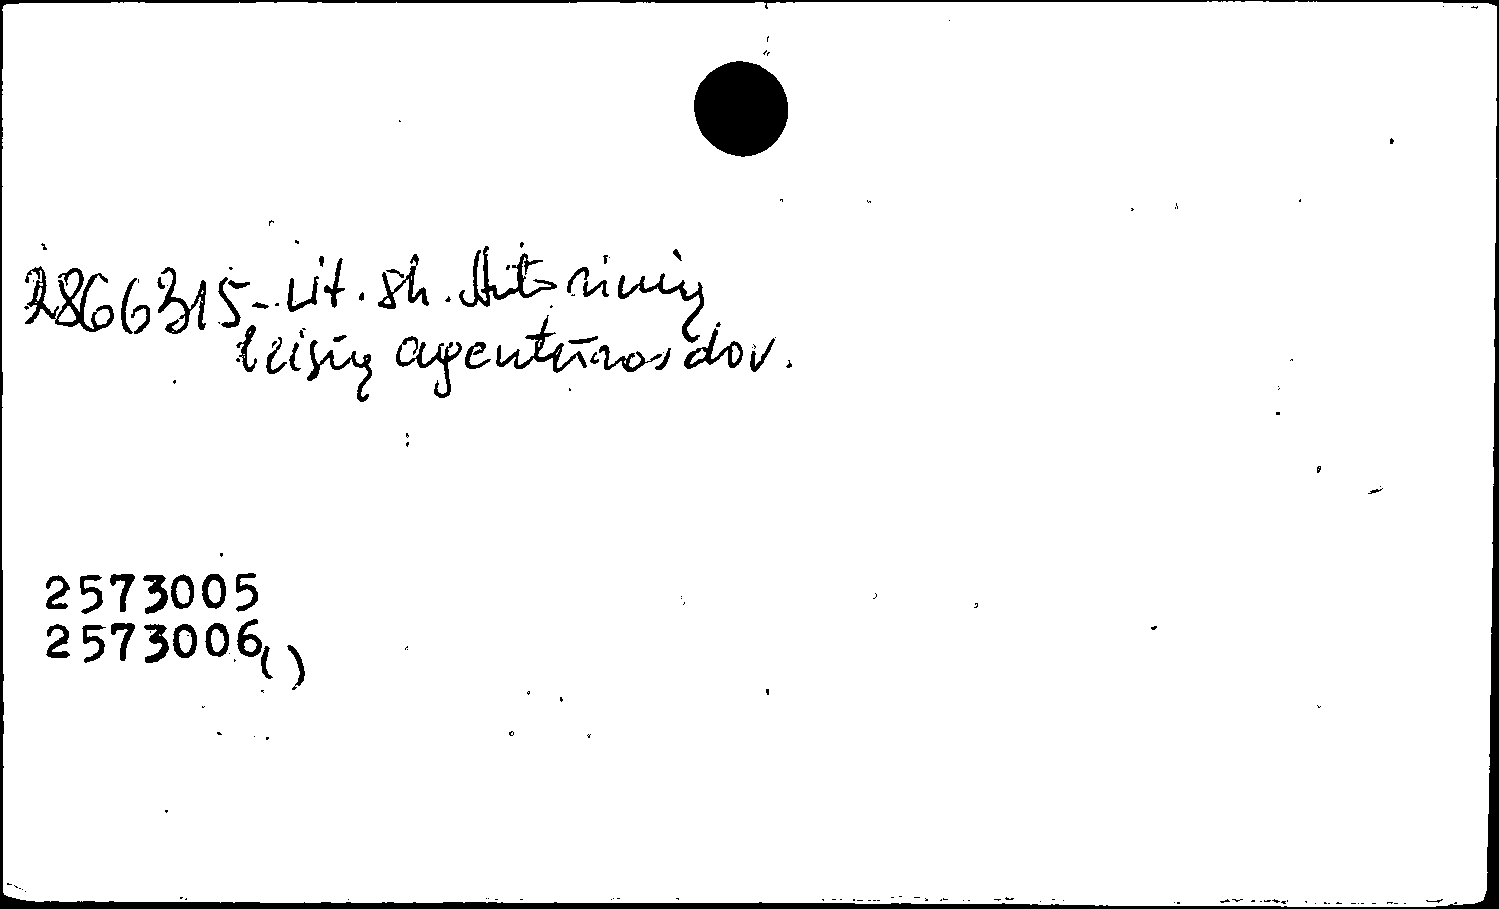 2866315-Lit. sk. Autorinių
teisių agentūros dov.
2573005
2573006( )